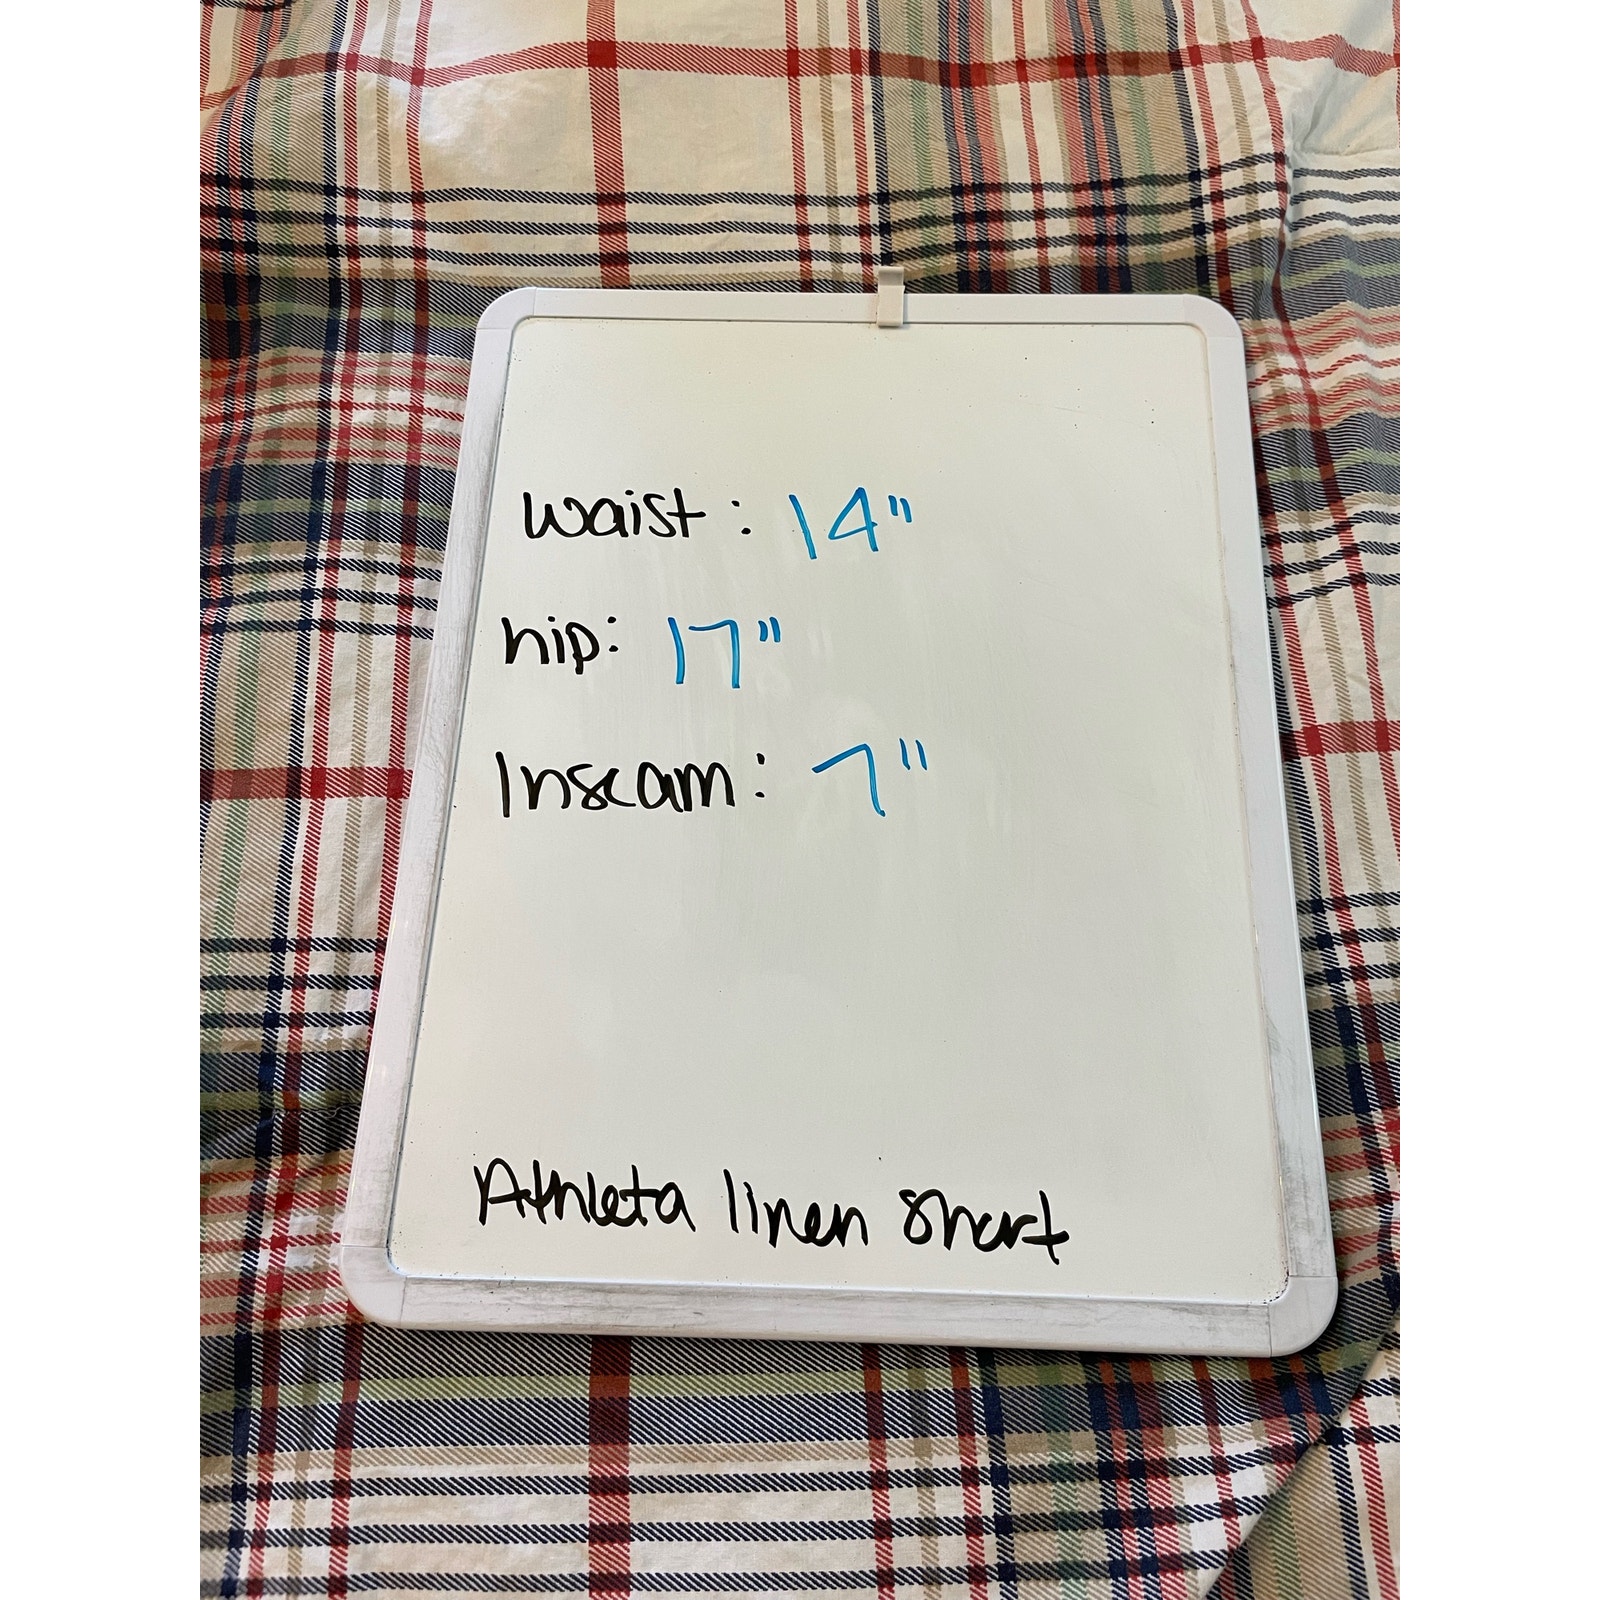 waist: 14"
hip: 17"
Inseam: 7"
Athleta linen short